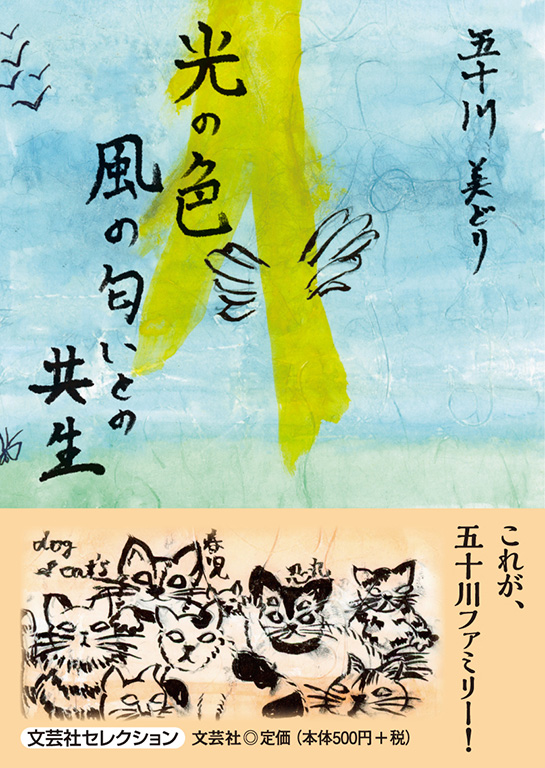 五十川 美どり
光の色
風の匂いとの
共生
これが、
五十川ファミリー！
dog
& cat's
春児
忍丸
文芸社セレクション
文芸社◎定価（本体500円＋税）